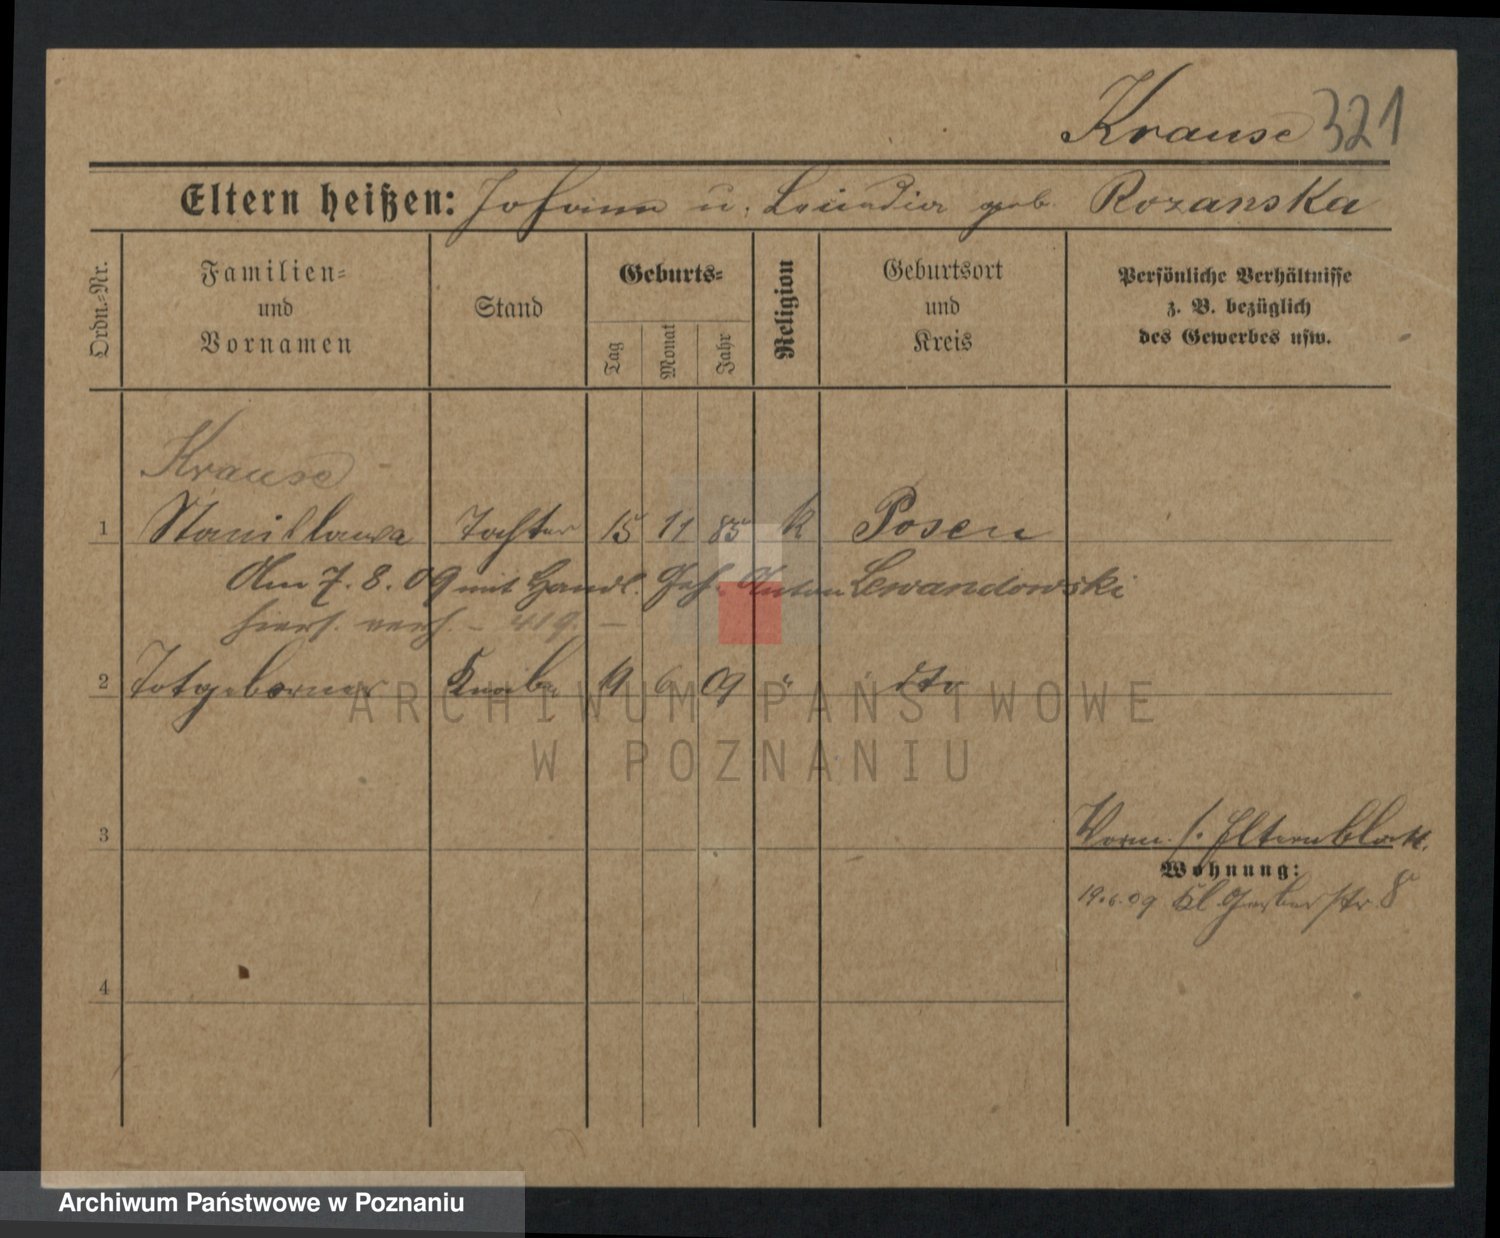 Krause 321
Eltern heißen: Johann u. Leucadia geb. Rozanska
Ordn.-Nr.
Familien-
und
Vornamen
Stand
Geburts-
Tag
Monat
Jahr
Religion
Geburtsort
und
Kreis
Persönliche Verhältnisse
z. B. bezüglich
des Gewerbes usw.
Krause
1 Stanislawa Tochter 15 11 85 k Posen
Am 7. 8. 09 mit Handl. Geh. Anton Lewandowski
hiers. verh. - 419. -
2 Totgeborner Knabe 19 6 09 " dto
3
Vorm. s. Elternblatt.
Wohnung:
19.6.09 Kl. Gerberstr. 8
4
ARCHIWUM PAŃSTWOWE
W POZNANIU
Archiwum Państwowe w Poznaniu